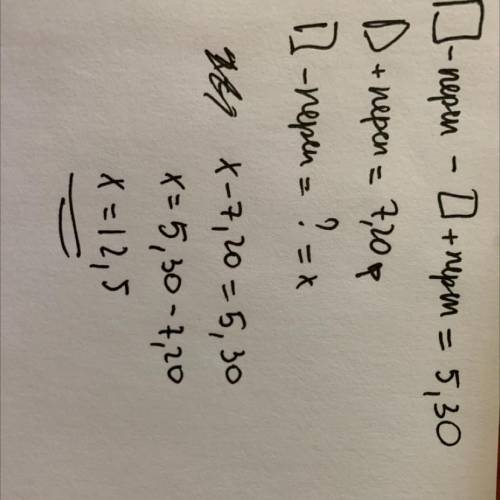 □ - перем - □ + перем = 5,30
□ + перем = 7,20
□ - перем = ? = x
x - 7,20 = 5,30
x = 5,30 - 7,20
x = 12,5